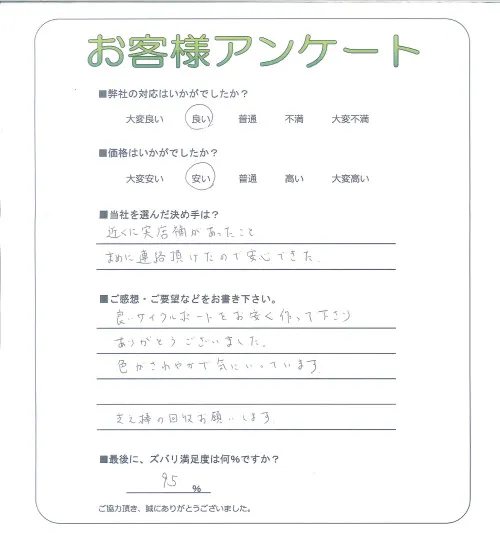 お客様アンケート
■弊社の対応はいかがでしたか？
大変良い 良い 普通 不満 大変不満
■価格はいかがでしたか？
大変安い 安い 普通 高い 大変高い
■当社を選んだ決め手は？
近くに実店舗があったこと
まめに連絡頂けたので安心できた.
■ご感想・ご要望などをお書き下さい。
良いサイクルポートをお安く作って下さり
ありがとうございました.
色がさわやかで気にいっています
支え棒の回収お願いします
■最後に、ズバリ満足度は何%ですか？
95 %
ご協力頂き、誠にありがとうございました。